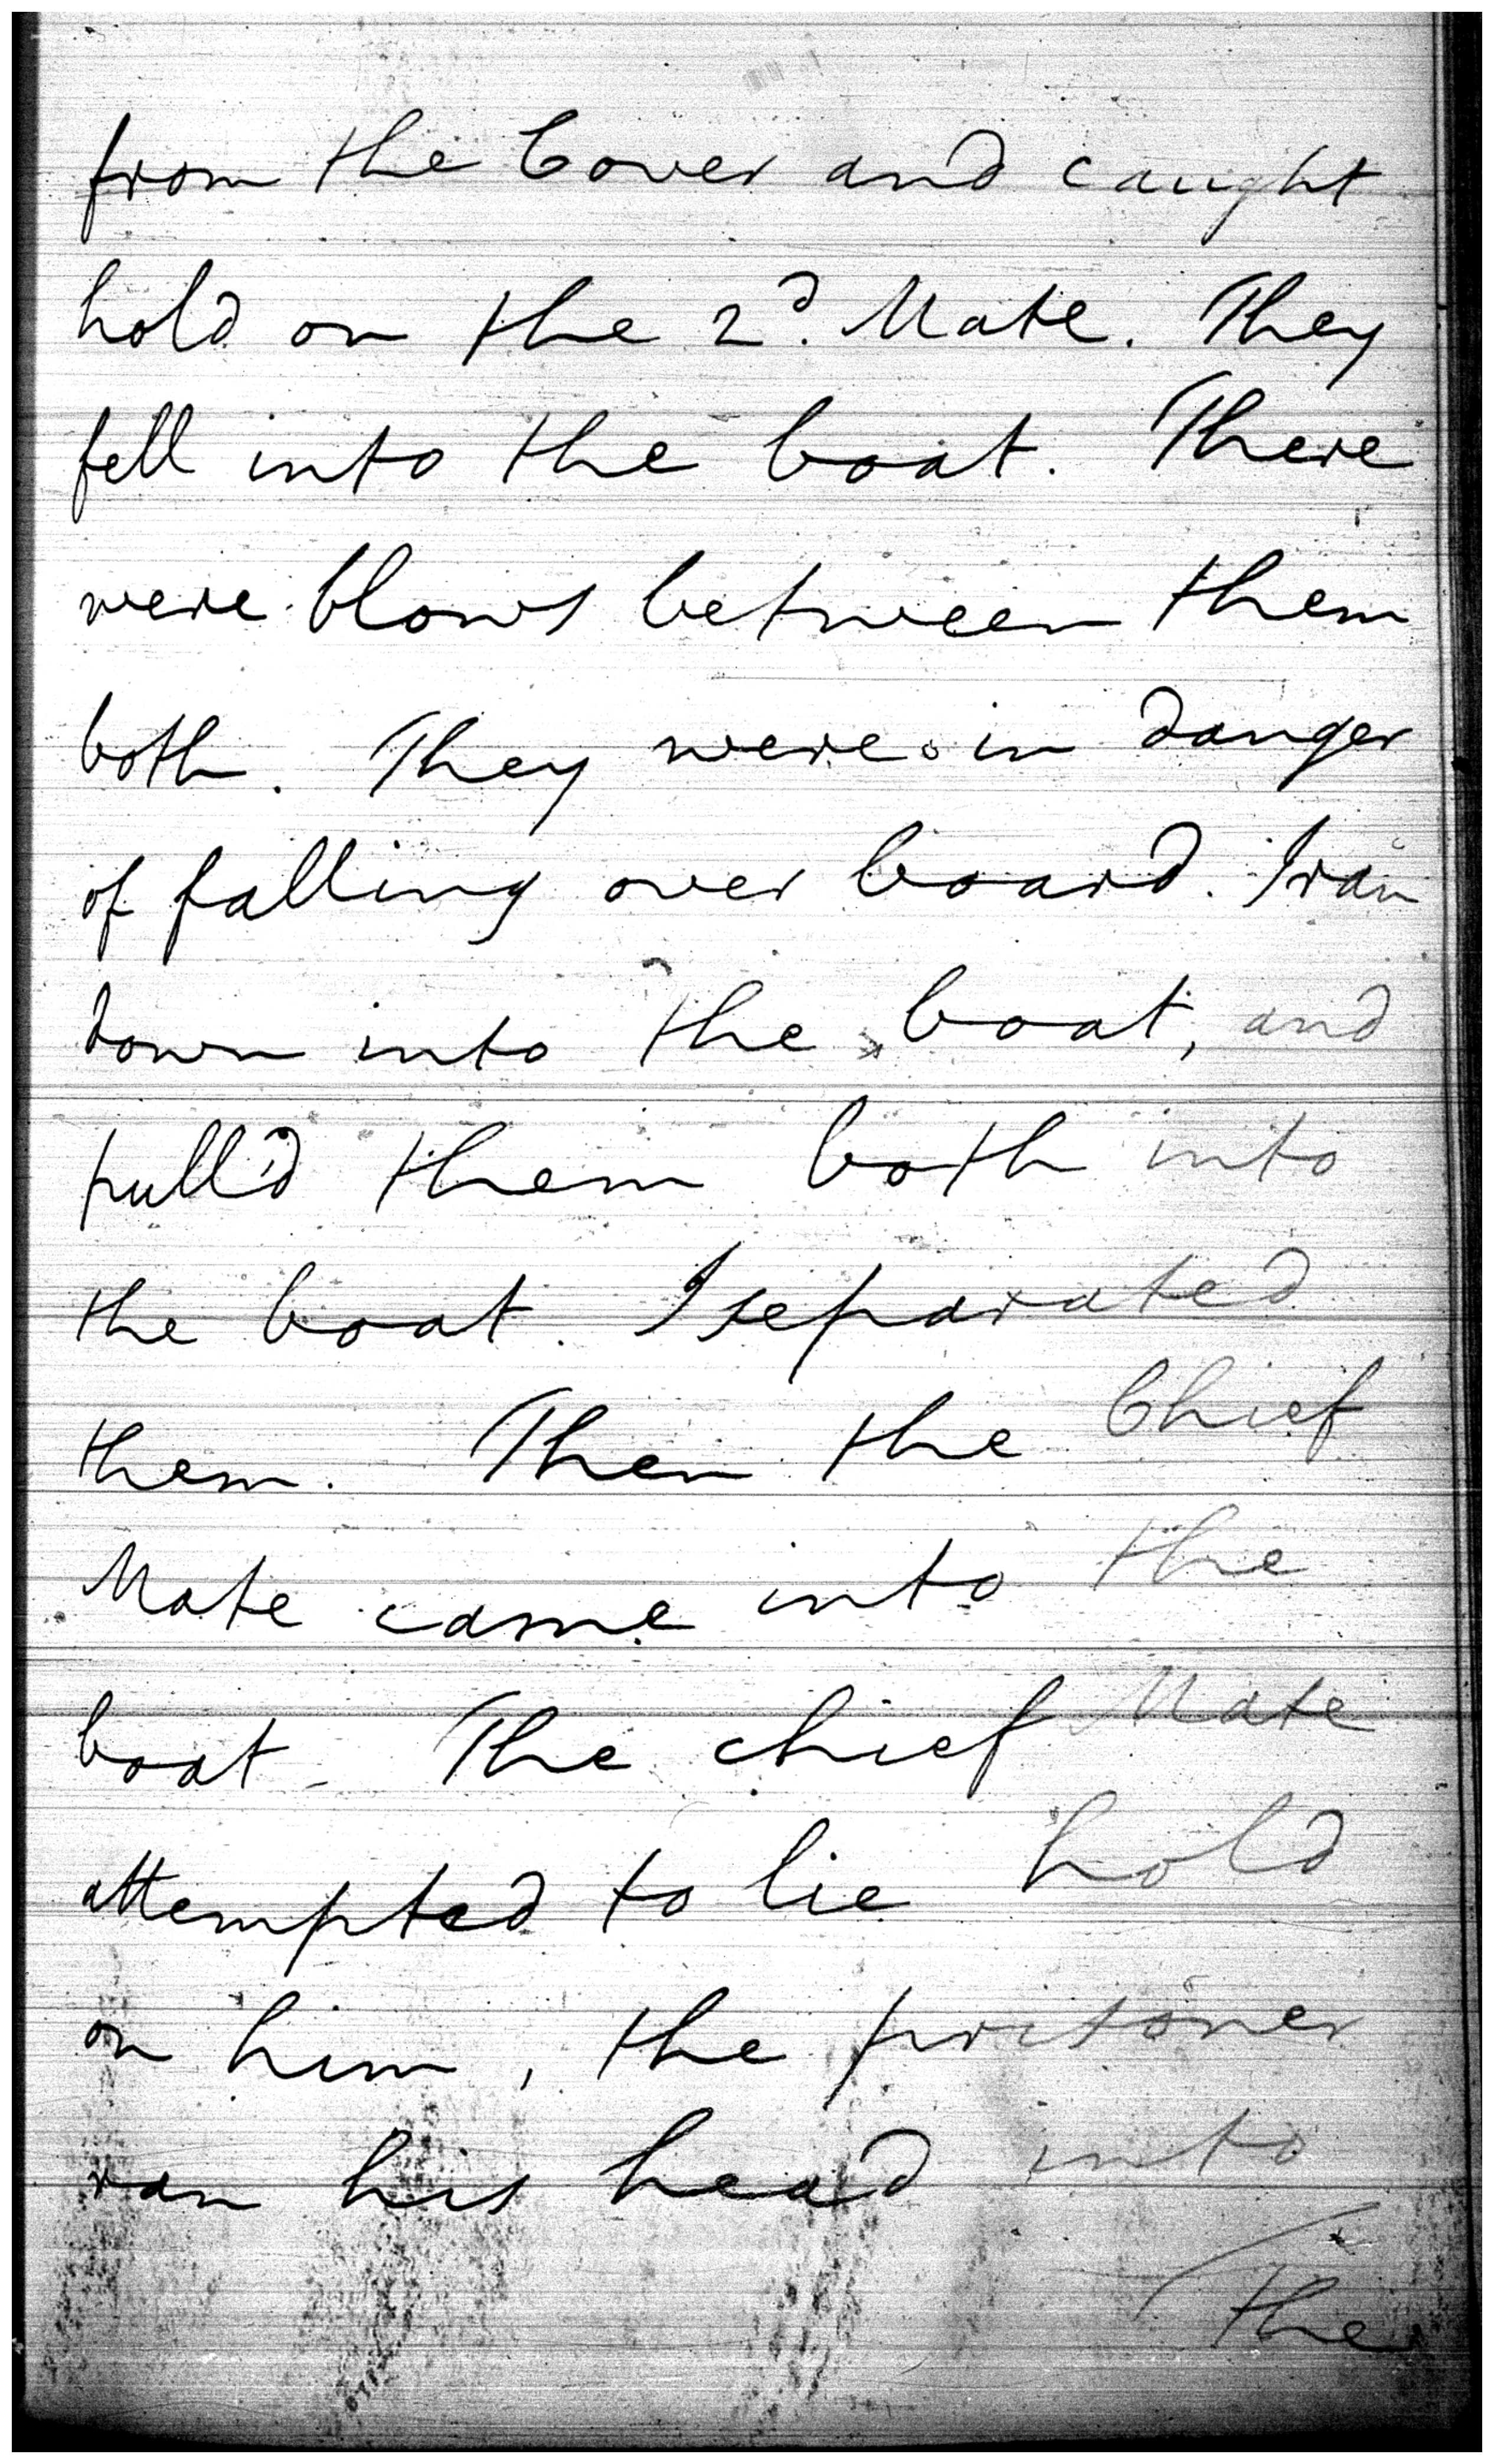 from the Cover and caught
hold on the 2d. Mate. They
fell into the boat. There
were blows between them
both. They were in danger
of falling over board. I ran
down into the boat, and
pull'd them both into
the boat. I separated
them. Then the Chief
Mate came into the
boat - The chief Mate
attempted to lie hold
on him, the prisoner
ran his head into
the